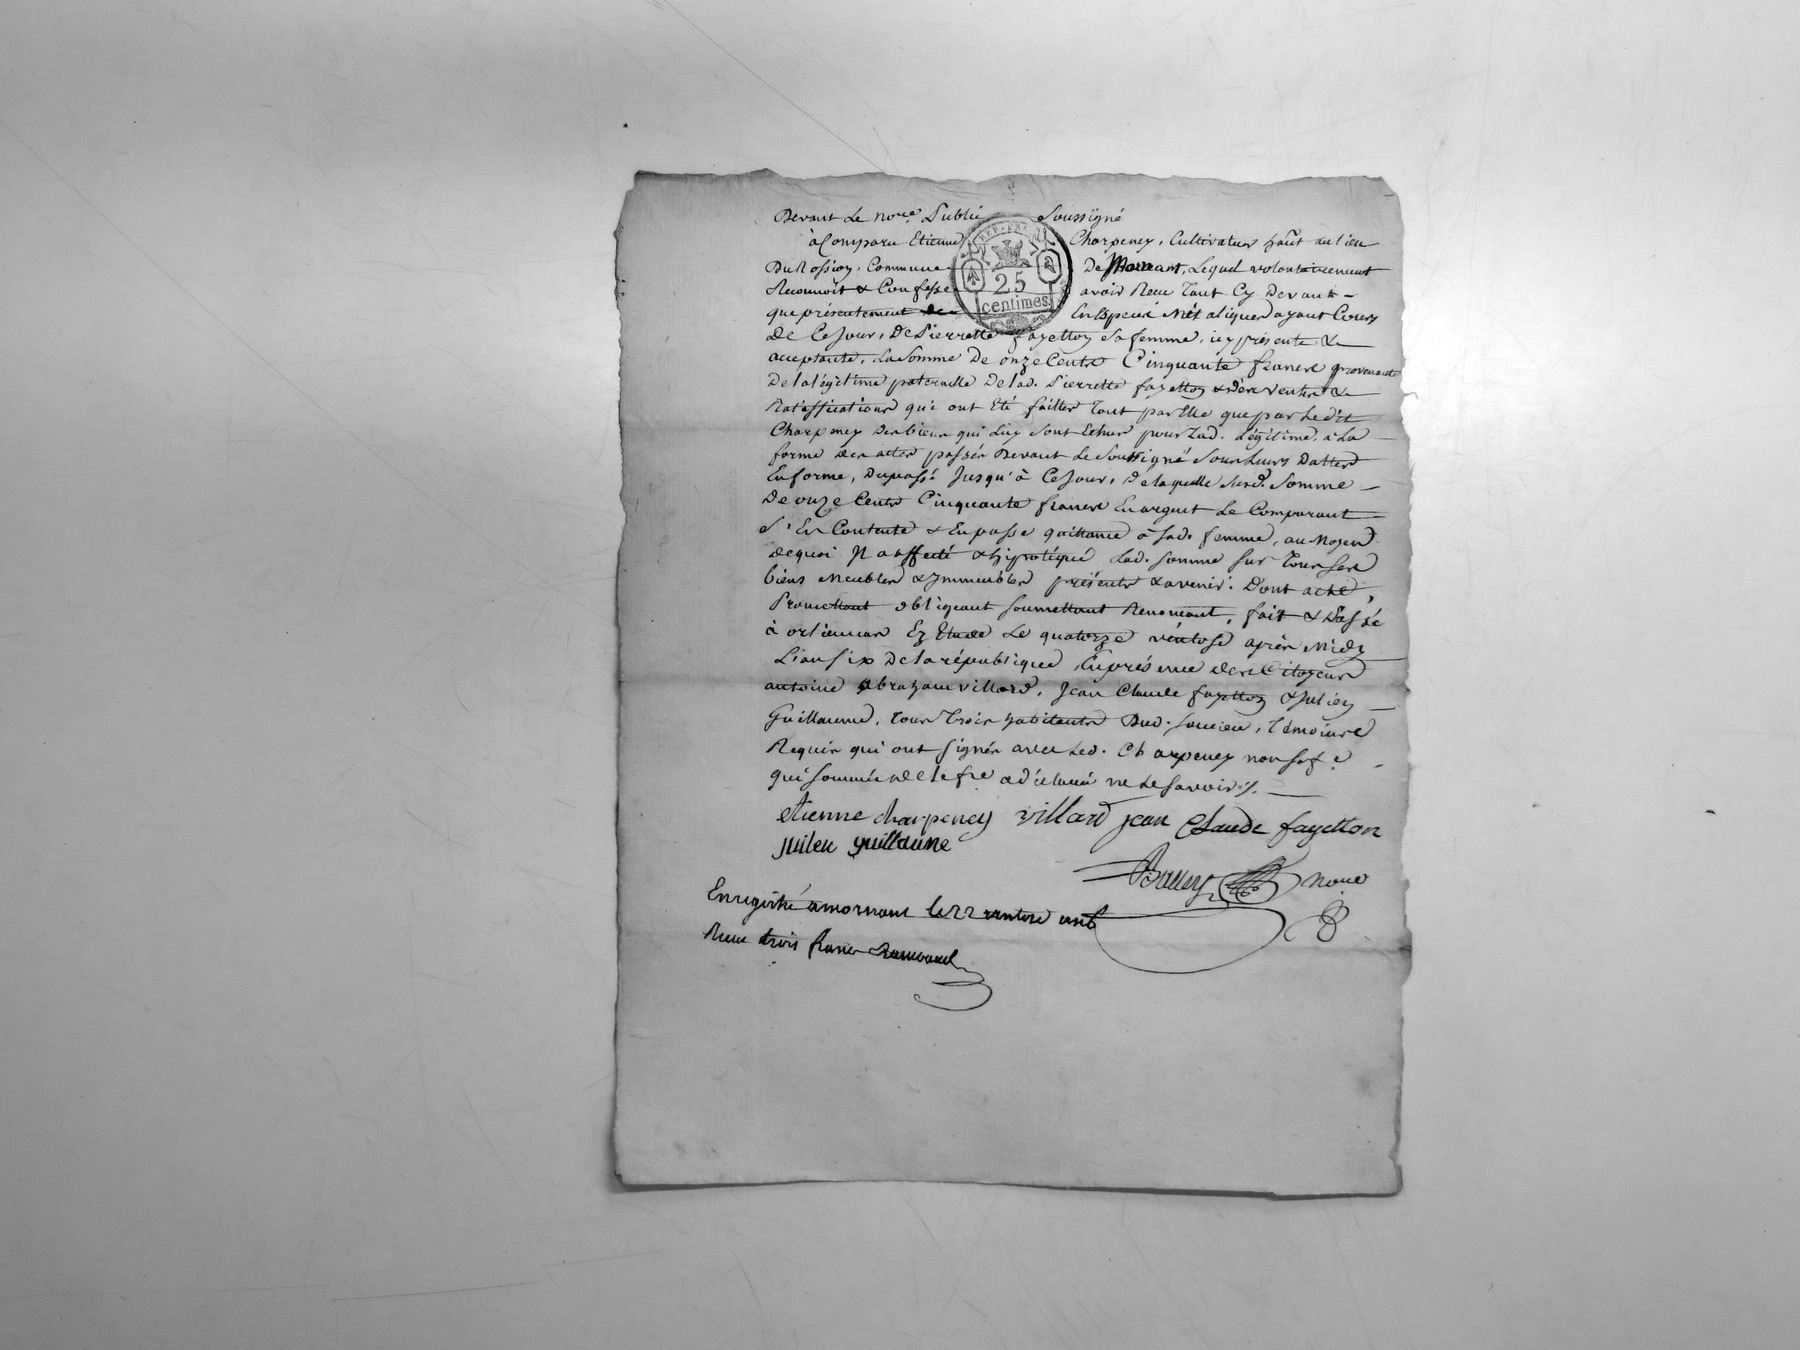 Devant Le no.re Public Soussigné
à Comparu Etienne Charpeney, Cultivateur ha.nt au lieu
Du Rossion, Commune De Mornant, Lequel volontairement
Reconnoit & Confesse avoir Reçu Tant Cy Devant
que présentement En Espèces Métaliques ayant Cours
de Ce Jour, De Pierrette fayetton Sa femme, icy présente &
acceptante, La Somme De onze Cents Cinquante francs provenante
De la légitime paternelle De lad. Pierrette fayetton & des ventes &
Ratiffications qui ont Eté faittes Tant par Elle que par Ledit
Charpeney Des biens qui Luy sont Echus pour Lad. Légitime, à La
forme des actes passés Devant Le Soussigné Sous Leurs Dattes
En forme, Du passé Jusqu'à Ce Jour, De laquelle Susd. Somme
De onze Cents Cinquante francs En argent Le Comparant
S'En Contente & En passe quittance à Sad. femme, au Moyen
de quoi Il a affecté & hipotéqué Lad. somme sur Tous Ses
biens Meubles & Immeubles présents & avenir. Dont acte,
Promettant obligeant soumettant Renonçant, fait & Passé
à orliennas En Etude Le quatorze ventose après Midy
L'an six De la république, En présence des Citoyens
antoine abraham villard, Jean Claude fayetton & Julien
Guillaume, Tous Trois habitants Dud. lieu, Témoins
Requis qui ont signés avec Led. Charpeney non sa f.e
qui sommée de le f.re a déclaré ne Le Savoir ./.
etienne charpeney villard jean Claude fayetton
julien guillaume
no.re
Enregistré a mornant le 22 ventose an 6
Reçu trois francs
REP. FRA.
25
centimes